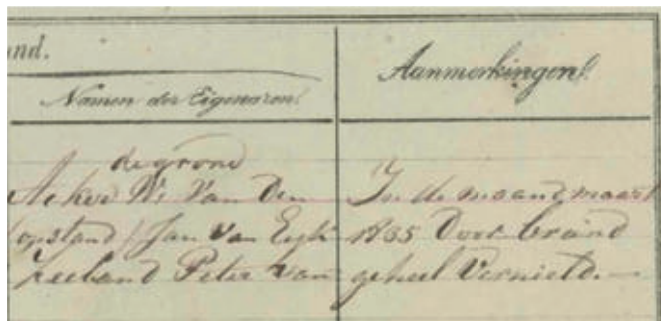 nd.
Namen der Eigenaren.
Aanmerkingen.
de grond
Acker We Van Den
opstand / Jan Van Eyk
Zeeland Peter Van
In de maand maart
1835 Door brand
geheel Vernield. —